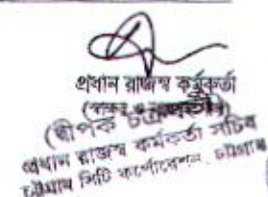 প্রধান রাজস্ব কর্মকর্তা
(স্বাক্ষর ও
(দ্বীপক চক্রবর্তী)
প্রধান রাজস্ব কর্মকর্তা সচিব
চট্টগ্রাম সিটি কর্পোরেশন, চট্টগ্রাম